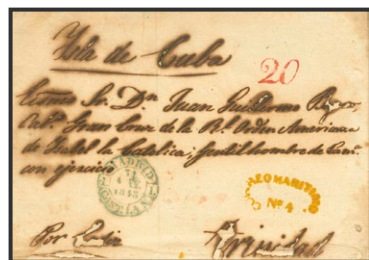 Isla de Cuba
20
Exmo Sr. Dn. Juan Guillermo
Gran Cruz de la Rl. Orden Americana
de Isabel la Catolica, gentil hombre de
con ejercicio
MADRID
CORREO MARITIMO
Nº 4
Por Cadiz
Trinidad